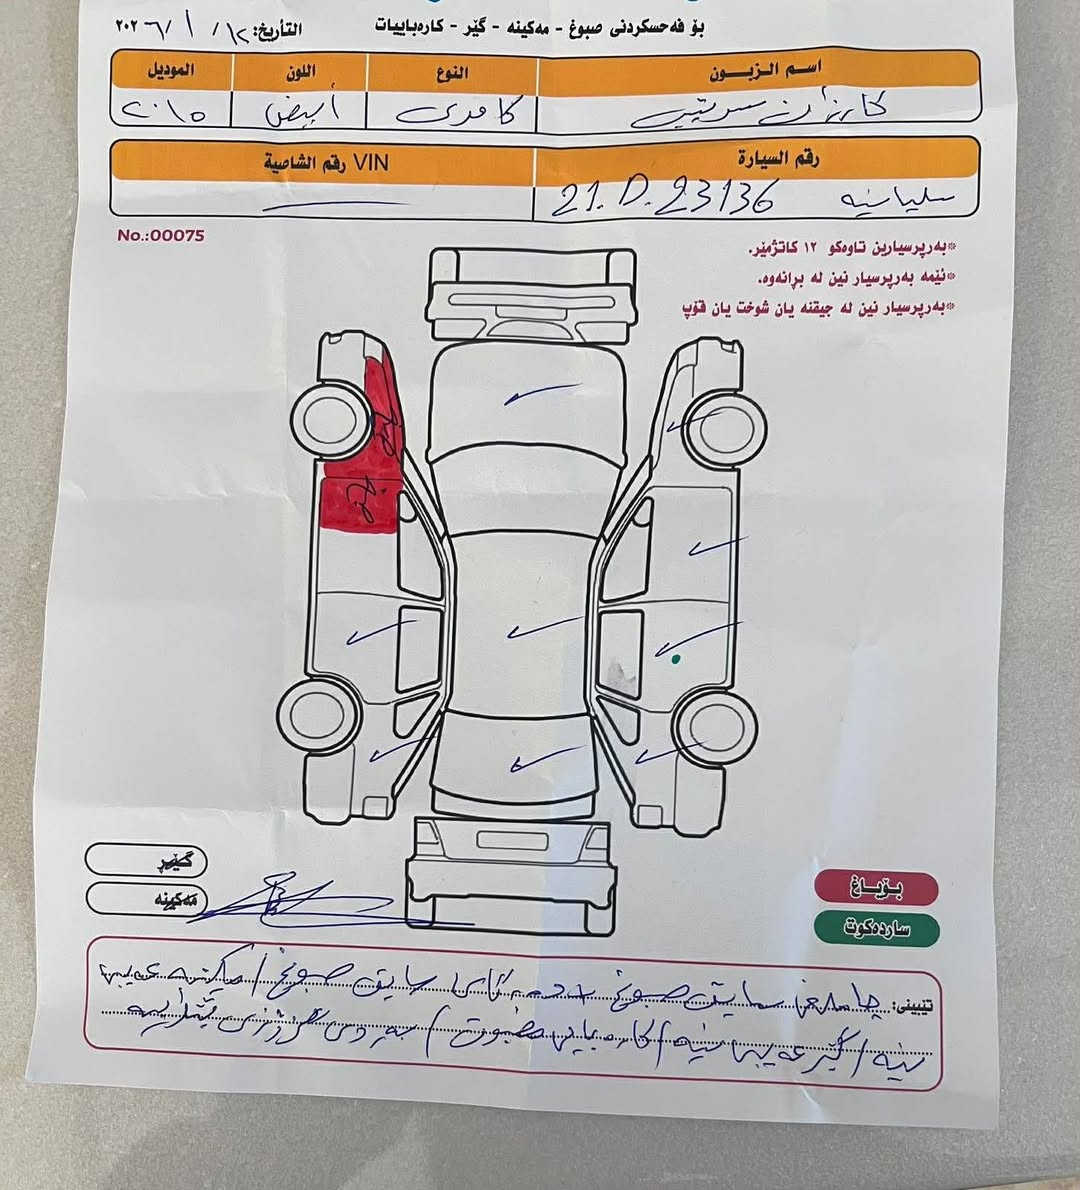 بۆ فەحسکردنی صبوغ - مەکینە - گێر - کارەباییات
التأريخ: ٢٠٢٦/١/١٢
اسم الزبون النوع اللون الموديل
كامري أبيض ٢٠١٥
رقم السيارة VIN رقم الشاصية
سليمانيه 21.D.23136
No.:00075
*بەرپرسیارین تاوەکو ١٢ کاتژمێر.
*ئێمە بەرپرسیار نین لە بڕانەوە.
*بەرپرسیار نین لە جیقنە یان شوخت یان قۆپ
گێڕ
مەکینە
بۆیاغ
ساردەکوت
تێبینی: چاملغ سایق صبوغ
نیە / گێر عەیبی نیە / کارەبایی مضبوت /